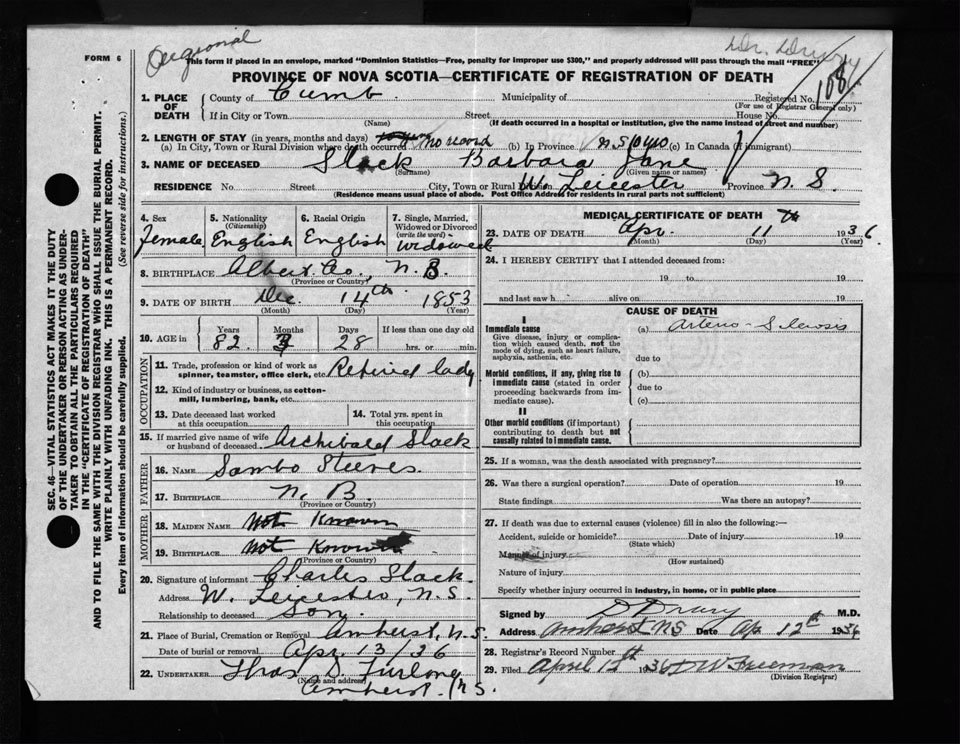 Original
Dr. Drury
FORM 6
This form if placed in an envelope, marked "Dominion Statistics—Free, penalty for improper use $300," and properly addressed will pass through the mail "FREE"
PROVINCE OF NOVA SCOTIA—CERTIFICATE OF REGISTRATION OF DEATH
108
1. PLACE OF DEATH
County of Cumb. Municipality of Registered No.
(For use of Registrar General only)
If in City or Town Street House No.
(Name) (If death occurred in a hospital or institution, give the name instead of street and number)
2. LENGTH OF STAY (in years, months and days)
(a) In City, Town or Rural Division where death occurred no record (b) In Province N.S. (c) In Canada (if immigrant)
3. NAME OF DECEASED Slack Barbara Jane
(Surname) (Given name or names)
RESIDENCE No. Street City, Town or Rural Division W. Leicester Province N. S.
(Residence means usual place of abode. Post Office Address for residents in rural parts not sufficient)
4. Sex Female
5. Nationality (Citizenship) English
6. Racial Origin English
7. Single, Married, Widowed or Divorced (write the word) Widowed
8. BIRTHPLACE Albert Co., N. B.
(Province or Country)
9. DATE OF BIRTH Dec. 14th 1853
(Month) (Day) (Year)
10. AGE in Years Months Days If less than one day old
82 3 28 hrs. or min.
OCCUPATION
11. Trade, profession or kind of work as spinner, teamster, office clerk, etc. Retired lady
12. Kind of industry or business, as cotton-mill, lumbering, bank, etc.
13. Date deceased last worked at this occupation
14. Total yrs. spent in this occupation
15. If married give name of wife or husband of deceased Archibald Slack
FATHER
16. NAME Sambo Steeves
17. BIRTHPLACE N. B.
(Province or Country)
MOTHER
18. MAIDEN NAME Not Known
19. BIRTHPLACE Not Known
(Province or Country)
20. Signature of informant Charles Slack
Address W. Leicester, N. S.
Relationship to deceased Son.
21. Place of Burial, Cremation or Removal Amherst, N. S.
Date of burial or removal Apr. 13/36
22. UNDERTAKER Thos D. Furlong
(Name and address)
Amherst N. S.
MEDICAL CERTIFICATE OF DEATH
23. DATE OF DEATH Apr. 11th 1936
(Month) (Day) (Year)
24. I HEREBY CERTIFY that I attended deceased from:
19 to 19
and last saw h alive on 19
CAUSE OF DEATH
I
Immediate cause (a) Arterio-Sclerosis
Give disease, injury or complication which caused death, not the mode of dying, such as heart failure, asphyxia, asthenia, etc.
due to
Morbid conditions, if any, giving rise to immediate cause (stated in order proceeding backwards from immediate cause).
(b)
due to
(c)
II
Other morbid conditions (if important) contributing to death but not causally related to immediate cause.
25. If a woman, was the death associated with pregnancy?
26. Was there a surgical operation? Date of operation 19
State findings Was there an autopsy?
27. If death was due to external causes (violence) fill in also the following:—
Accident, suicide or homicide? Date of injury 19
(State which)
Manner of injury
(How sustained)
Nature of injury
Specify whether injury occurred in industry, in home, or in public place
Signed by D Drury M.D.
Address Amherst NS Date Ap 12th 1936
28. Registrar's Record Number
29. Filed April 12th 1936 D W Freeman
(Division Registrar)
SEC. 46—VITAL STATISTICS ACT MAKES IT THE DUTY
OF THE UNDERTAKER OR PERSON ACTING AS UNDER-
TAKER TO OBTAIN ALL THE PARTICULARS REQUIRED
IN THE "CERTIFICATE OF REGISTRATION OF DEATH"
AND TO FILE THE SAME WITH THE DIVISION REGISTRAR WHO SHALL ISSUE THE BURIAL PERMIT.
WRITE PLAINLY WITH UNFADING INK. THIS IS A PERMANENT RECORD.
Every item of information should be carefully supplied. (See reverse side for instructions.)